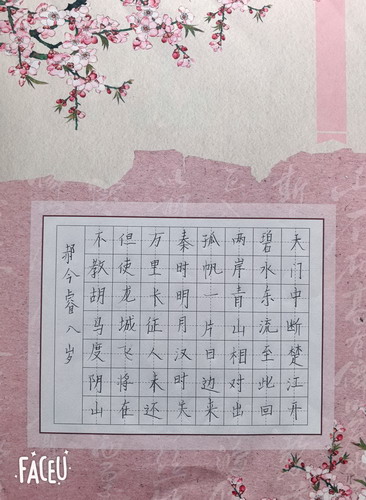 天门中断楚江开
碧水东流至此回
两岸青山相对出
孤帆一片日边来
秦时明月汉时关
万里长征人未还
但使龙城飞将在
不教胡马度阴山
今睿八岁
FACEU